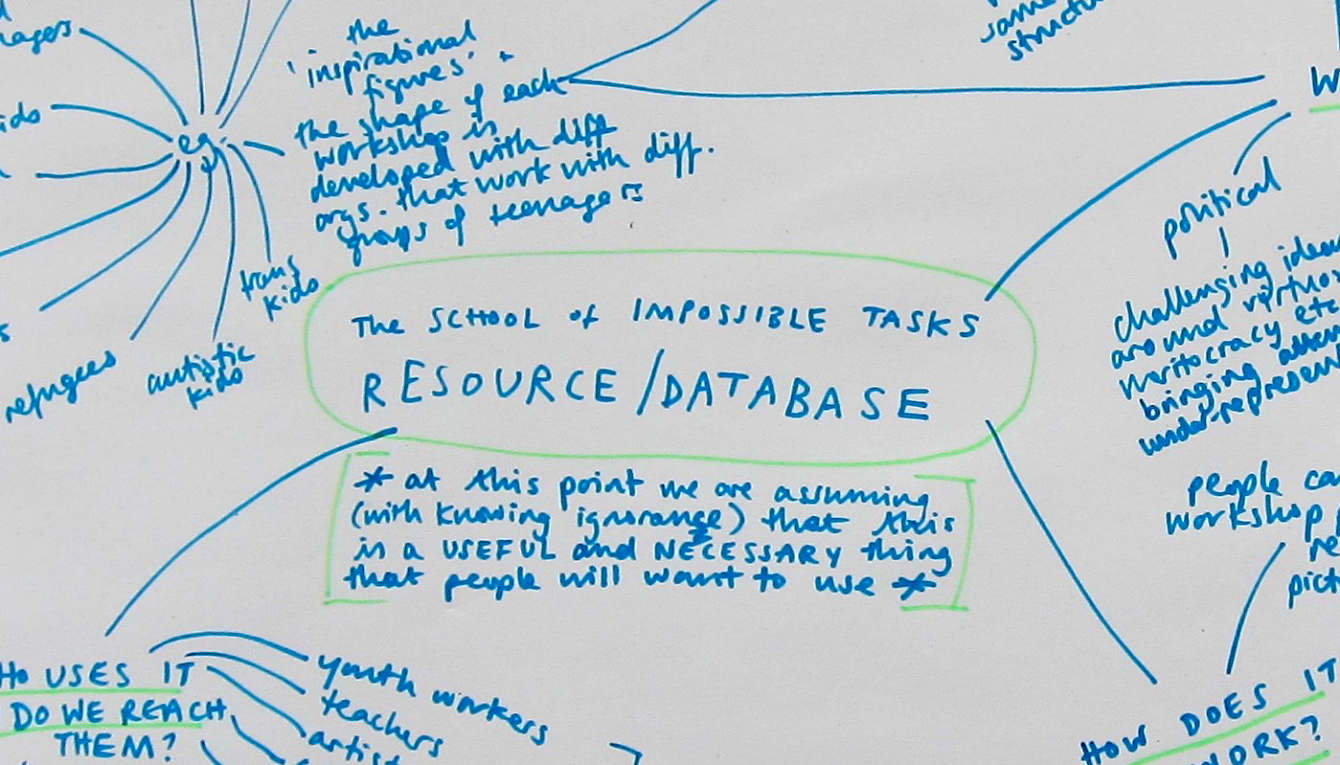 the
'inspirational
figures'
the shape of each
workshop is
developed with diff
orgs. that work with diff.
groups of teenagers
same
eg.
trans
kids
autistic
kids
refugees
The SCHOOL of IMPOSSIBLE TASKS
RESOURCE/DATABASE
* at this point we are assuming
(with knowing ignorance) that this
is a USEFUL and NECESSARY thing
that people will want to use *
political
challenging
around
meritocracy
bringing
people
workshop
USES IT
DO WE REACH
THEM?
youth workers
teachers
HOW DOES IT